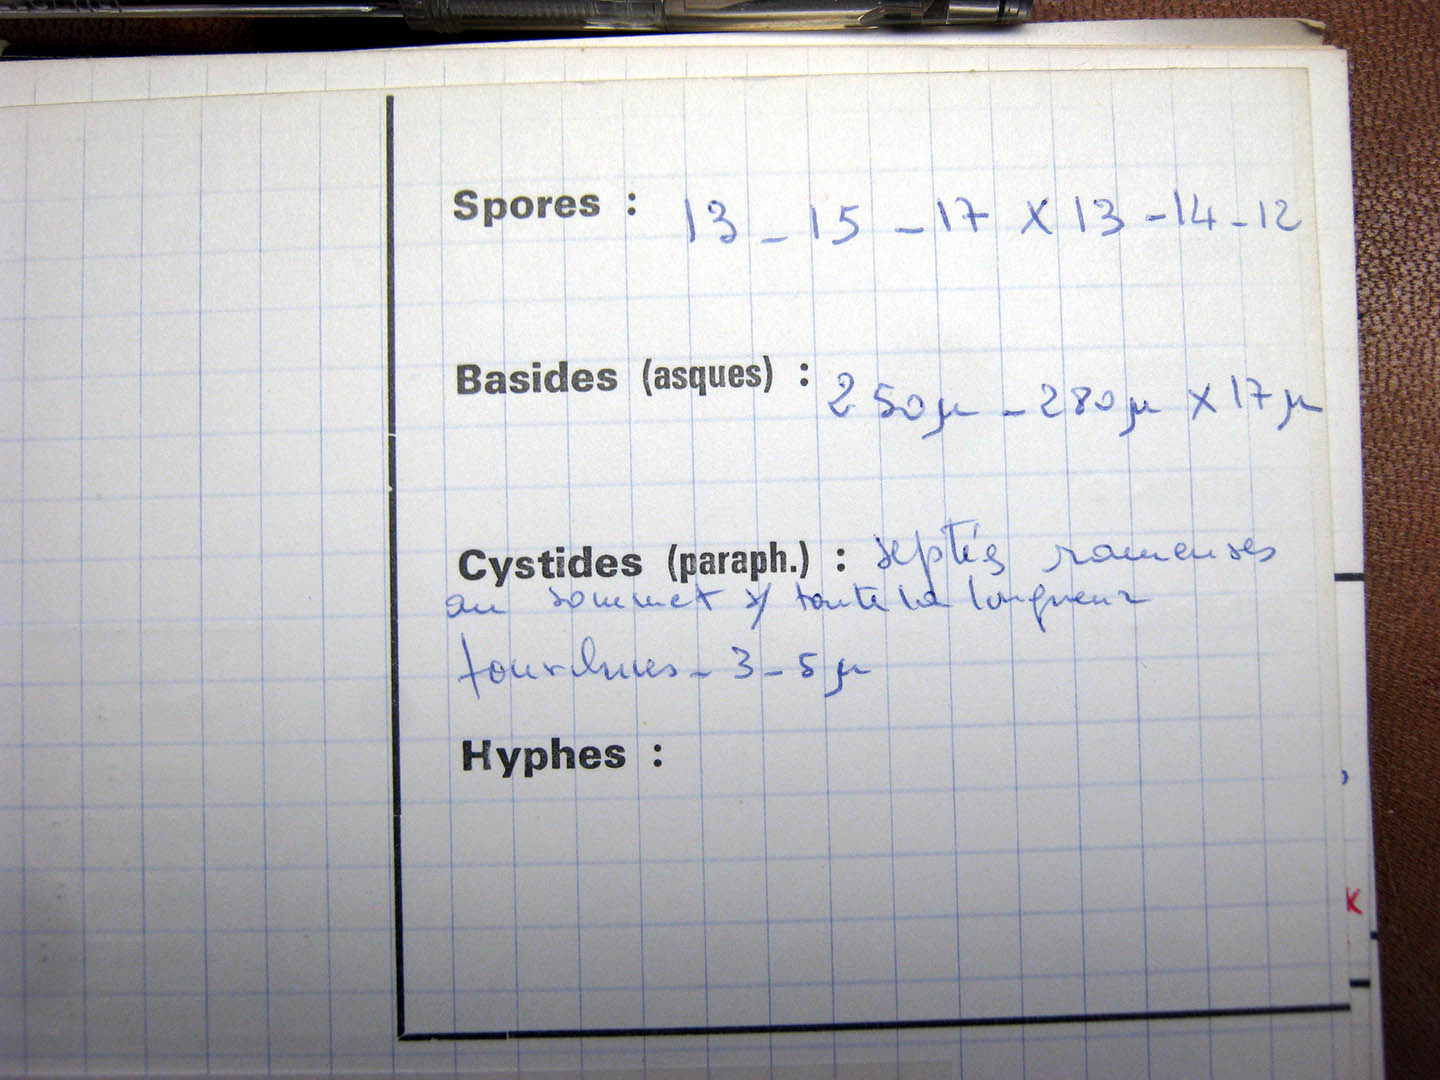 Spores : 13 - 15 - 17 X 13 - 14 - 12
Basides (asques) : 250µ - 280µ X 17µ
Cystides (paraph.) : septés rameuses
au sommet s/ toute la longueur
fourchues - 3 - 5µ
Hyphes :
K